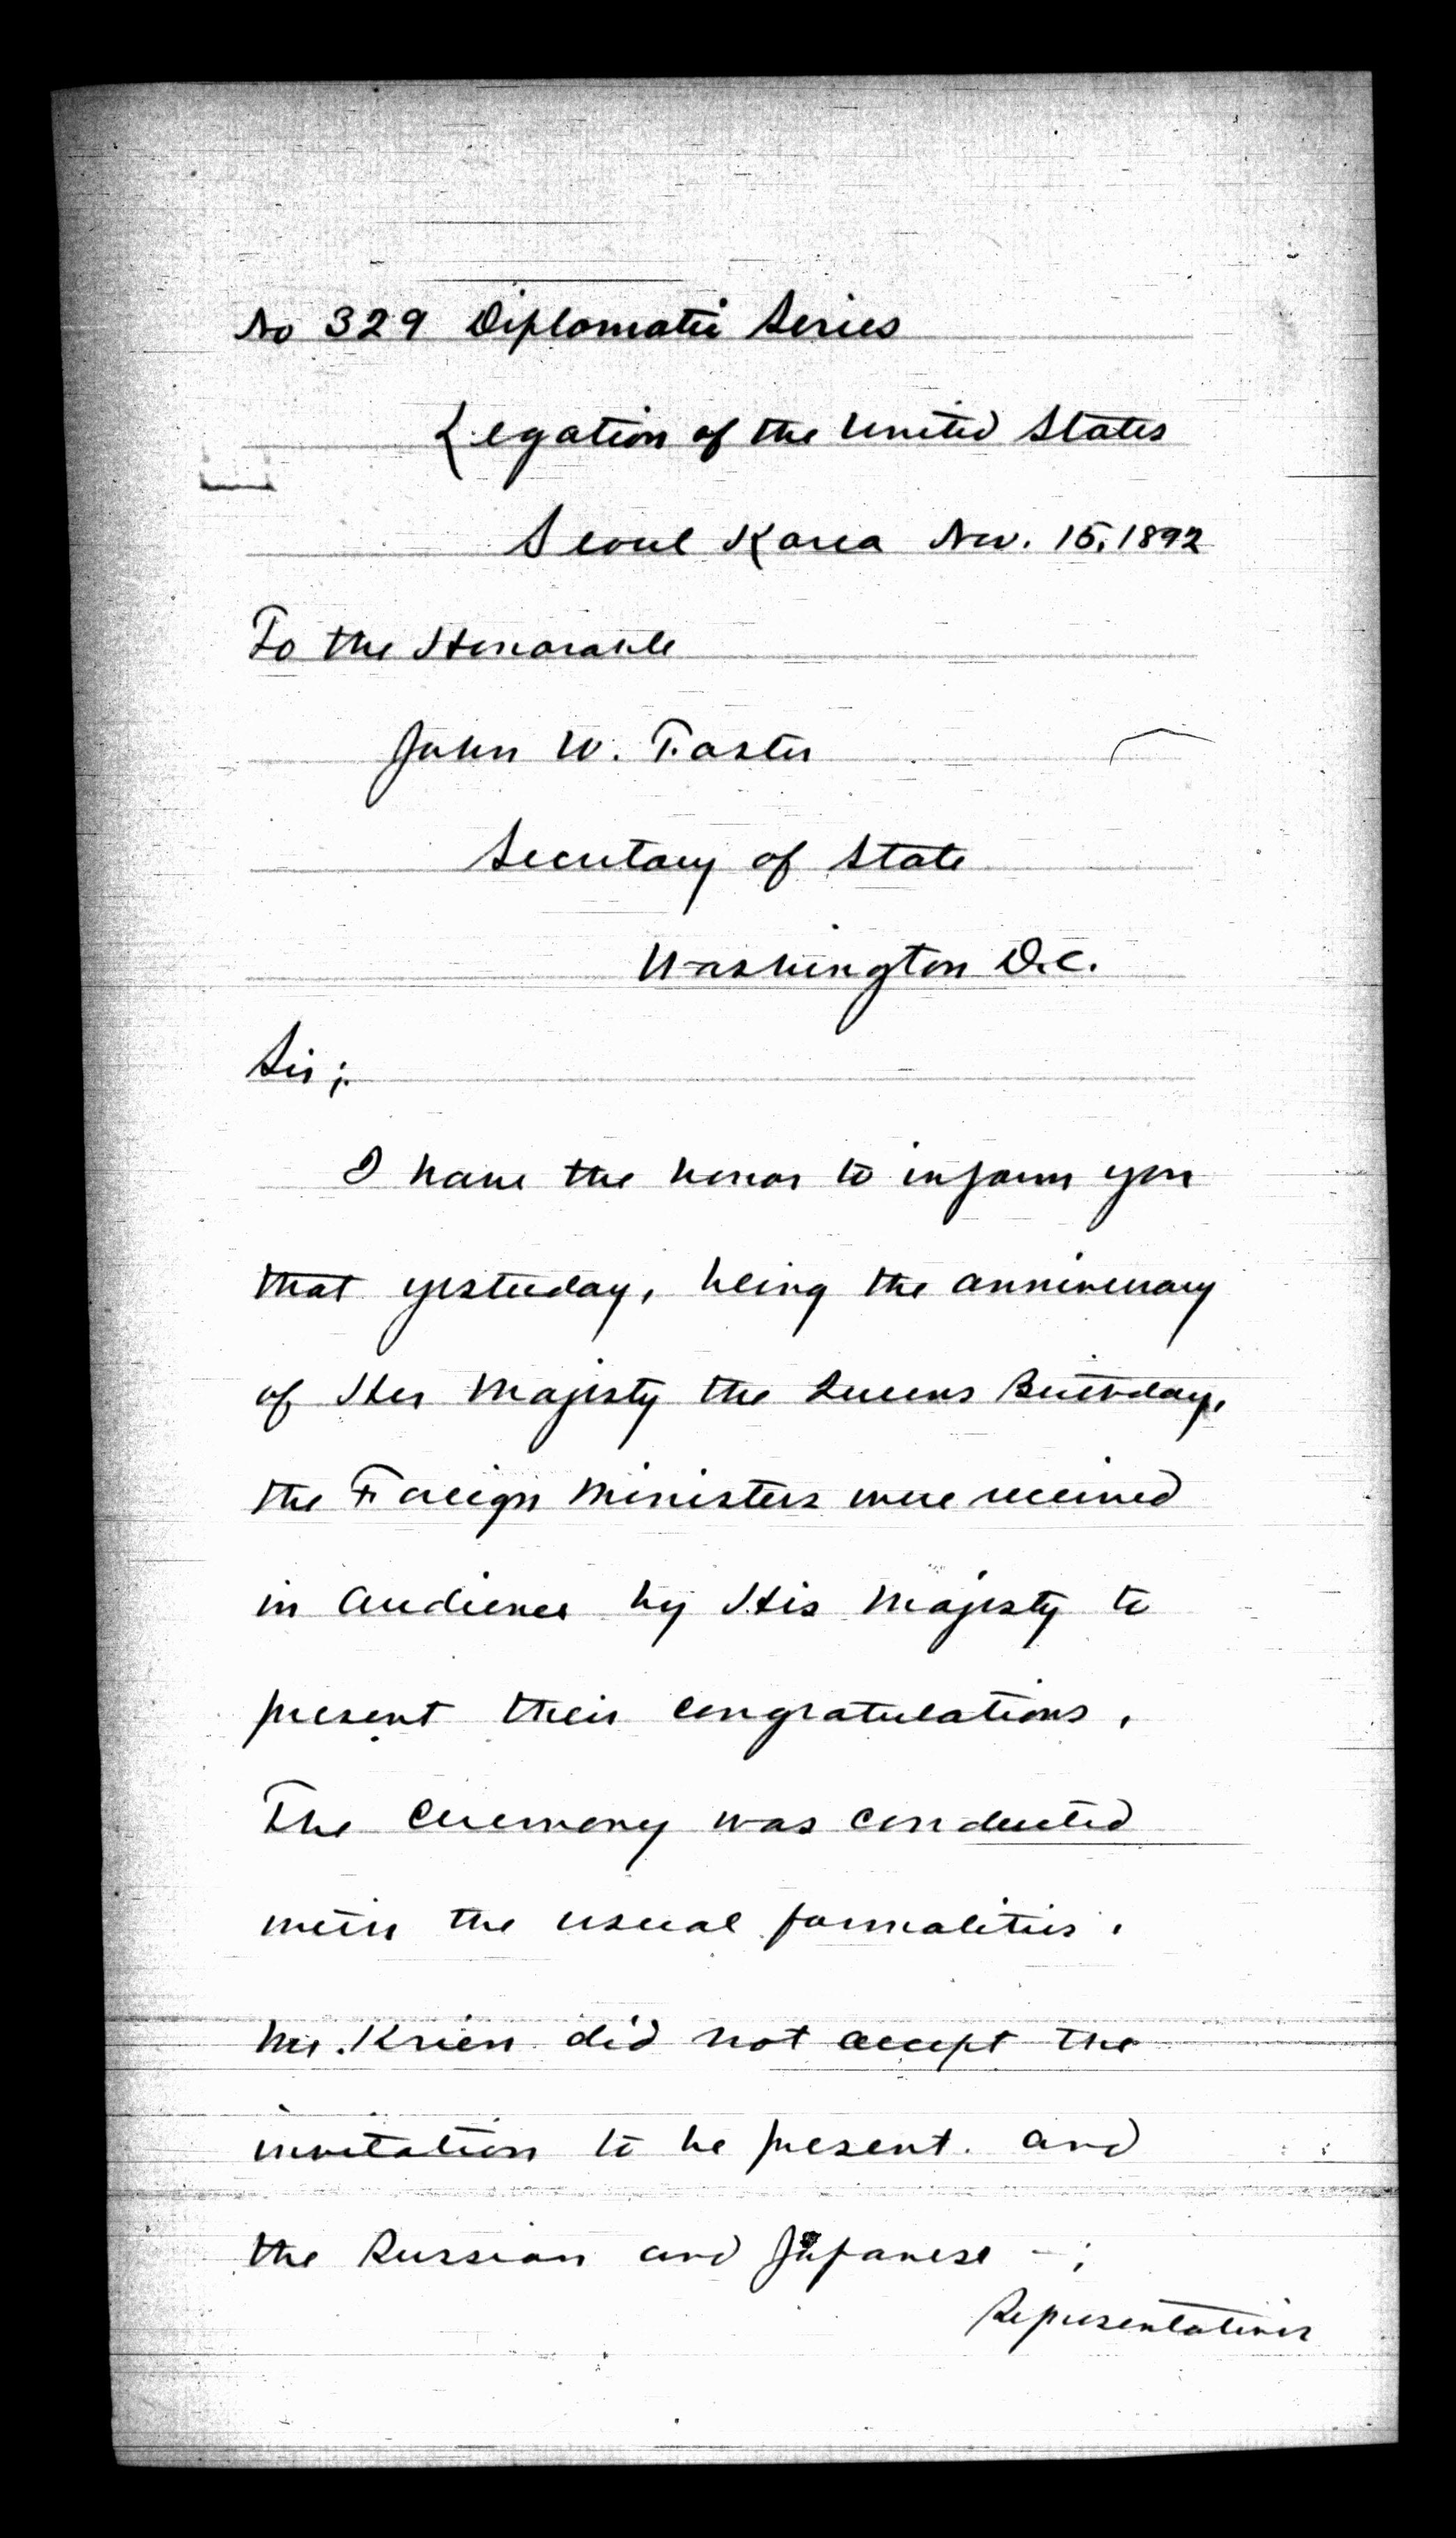 No 329 Diplomatic Series
Legation of the United States
Seoul Korea Nov. 15, 1892
To the Honorable
John W. Foster
Secretary of State
Washington D.C.
Sir;
I have the honor to inform you
that yesterday, being the anniversary
of Her Majesty the Queens Birthday,
the Foreign Ministers were received
in Audience by His Majesty to
present their congratulations.
The ceremony was conducted
with the usual formalities.
Mr. Krien did not accept the
invitation to be present. and
the Russian and Japanese -;
Representatives